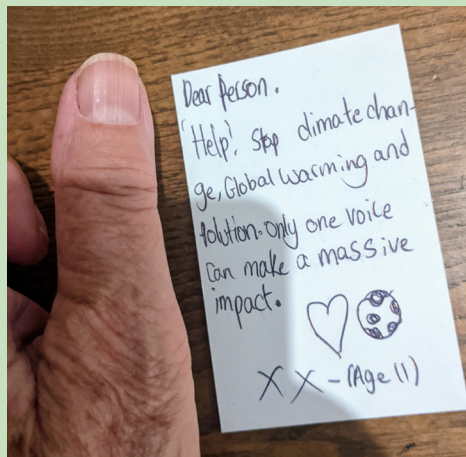 Dear Person.
'Help'. Stop climate chan-
ge, Global warming and
Polution. only one voice
can make a massive
impact.
XX - (Age 11)